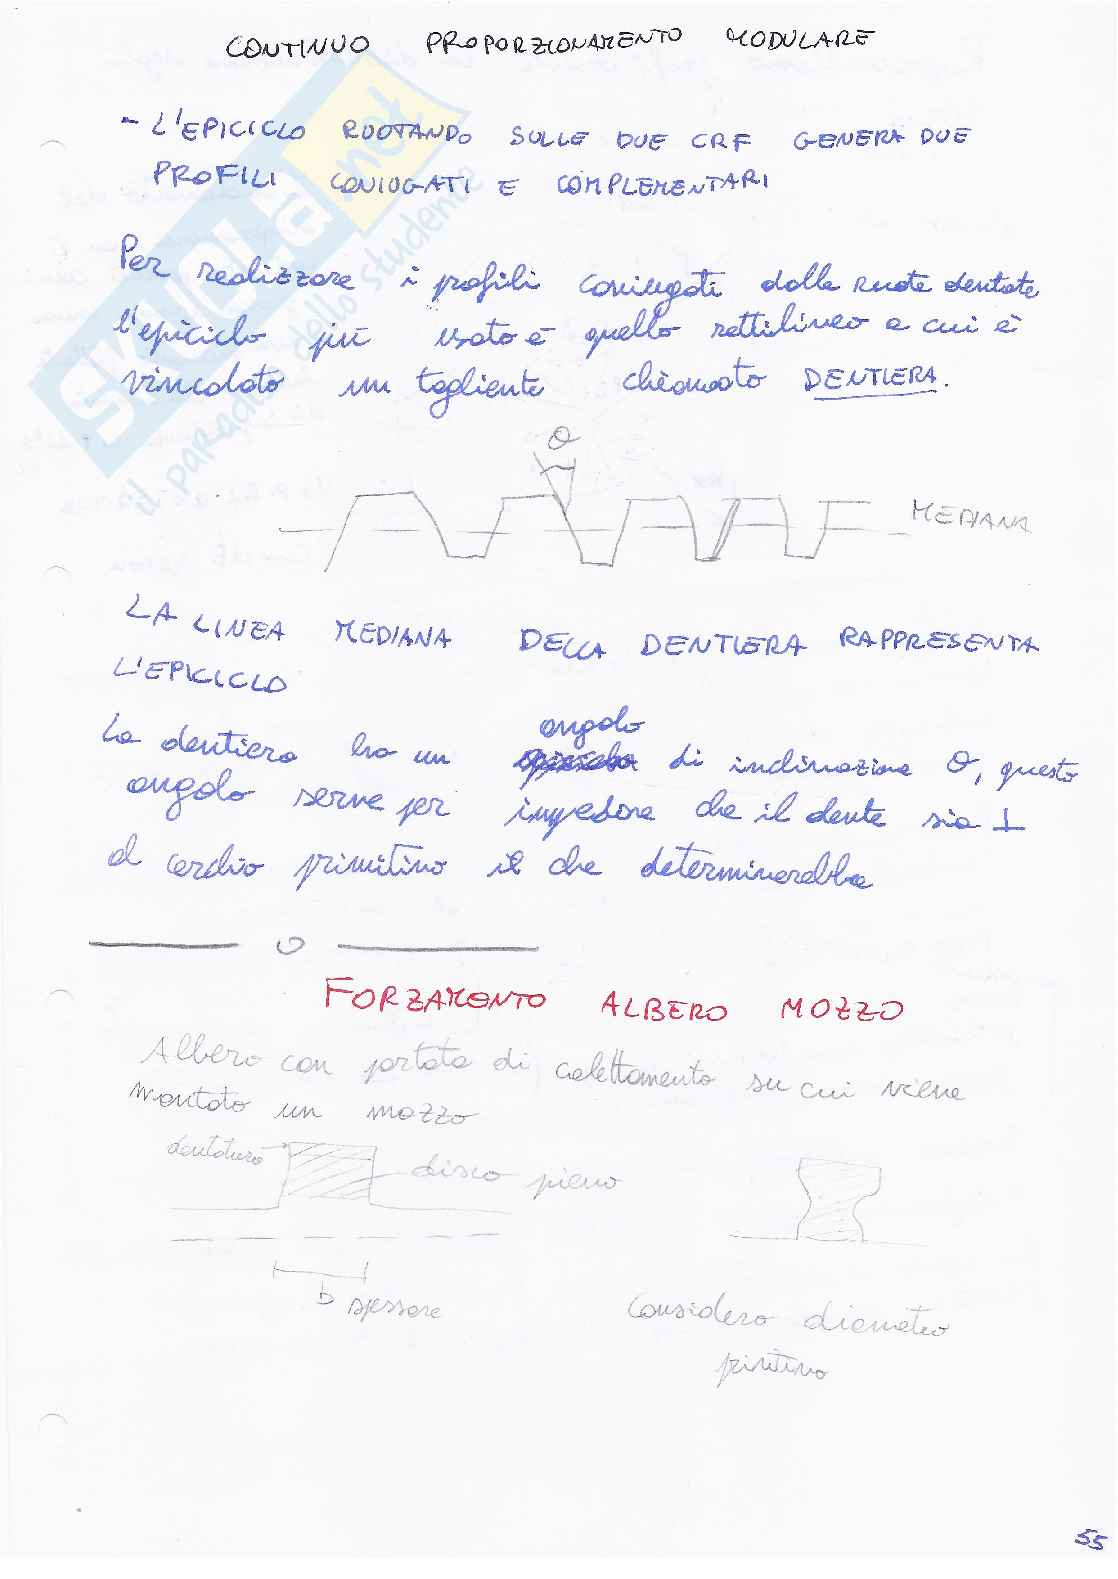 CONTINUO PROPORZIONAMENTO MODULARE
- L'EPICICLO RUOTANDO SULLE DUE CRF GENERA DUE
PROFILI CONIUGATI E COMPLEMENTARI
Per realizzare i profili coniugati delle ruote dentate
l'epiciclo più usato è quello rettilineo a cui è
vincolato un tagliente chiamato DENTIERA.
θ
MEDIANA
LA LINEA MEDIANA DELLA DENTIERA RAPPRESENTA
L'EPICICLO
La dentiera ha un angolo di inclinazione θ, questo
angolo serve per impedire che il dente sia ⊥
al cerchio primitivo il che determinerebbe
FORZAMENTO ALBERO MOZZO
Albero con portata di calettamento su cui viene
montato un mozzo
dentatura
disco pieno
b spessore
Considero diametro
primitivo
55
SKUOLA.net
il paradiso dello studente